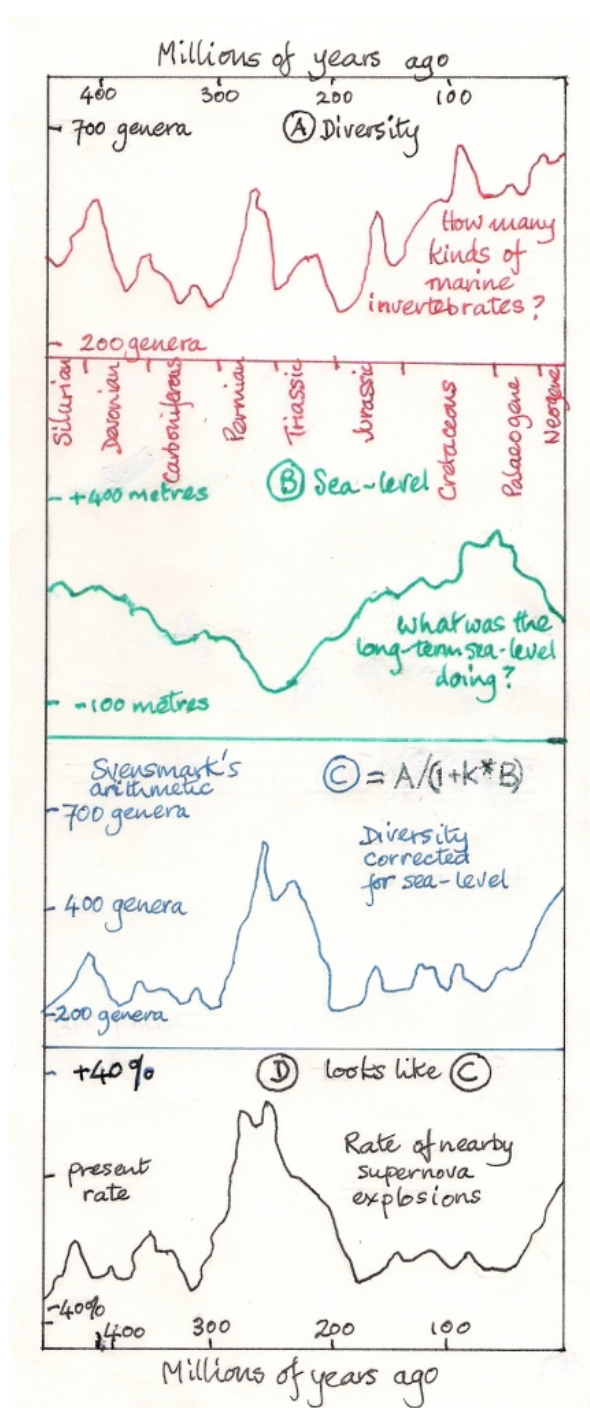 Millions of years ago
400 300 200 100
700 genera
Ⓐ Diversity
How many
kinds of
marine
invertebrates?
200 genera
Silurian
Devonian
Carboniferous
Permian
Triassic
Jurassic
Cretaceous
Palaeogene
Neogene
+400 metres
Ⓑ Sea-level
What was the
long-term sea-level
doing?
-100 metres
Svensmark's
arithmetic
Ⓒ = A/(1+K*B)
700 genera
Diversity
corrected
for sea-level
400 genera
200 genera
+40%
Ⓓ looks like Ⓒ
Rate of nearby
supernova
explosions
present
rate
-40%
400 300 200 100
Millions of years ago